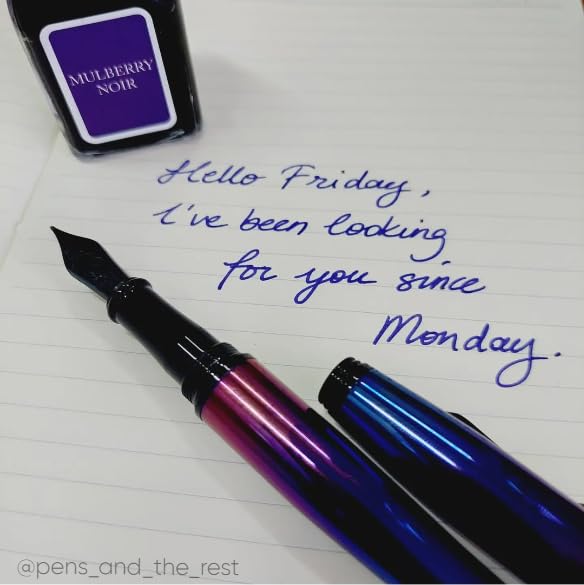 MULBERRY
NOIR
Hello Friday,
I've been looking
for you since
Monday.
@pens_and_the_rest